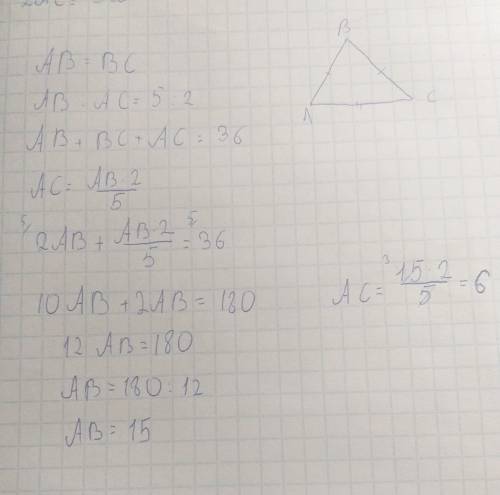 AB = BC
AB : AC = 5 : 2
AB + BC + AC = 36
AC = AB·2/5
5/ 2AB + AB·2/5 = 36 5
10AB + 2AB = 180
12 AB = 180
AB = 180 : 12
AB = 15
B
A
C
AC = 15·2/5 = 6
3